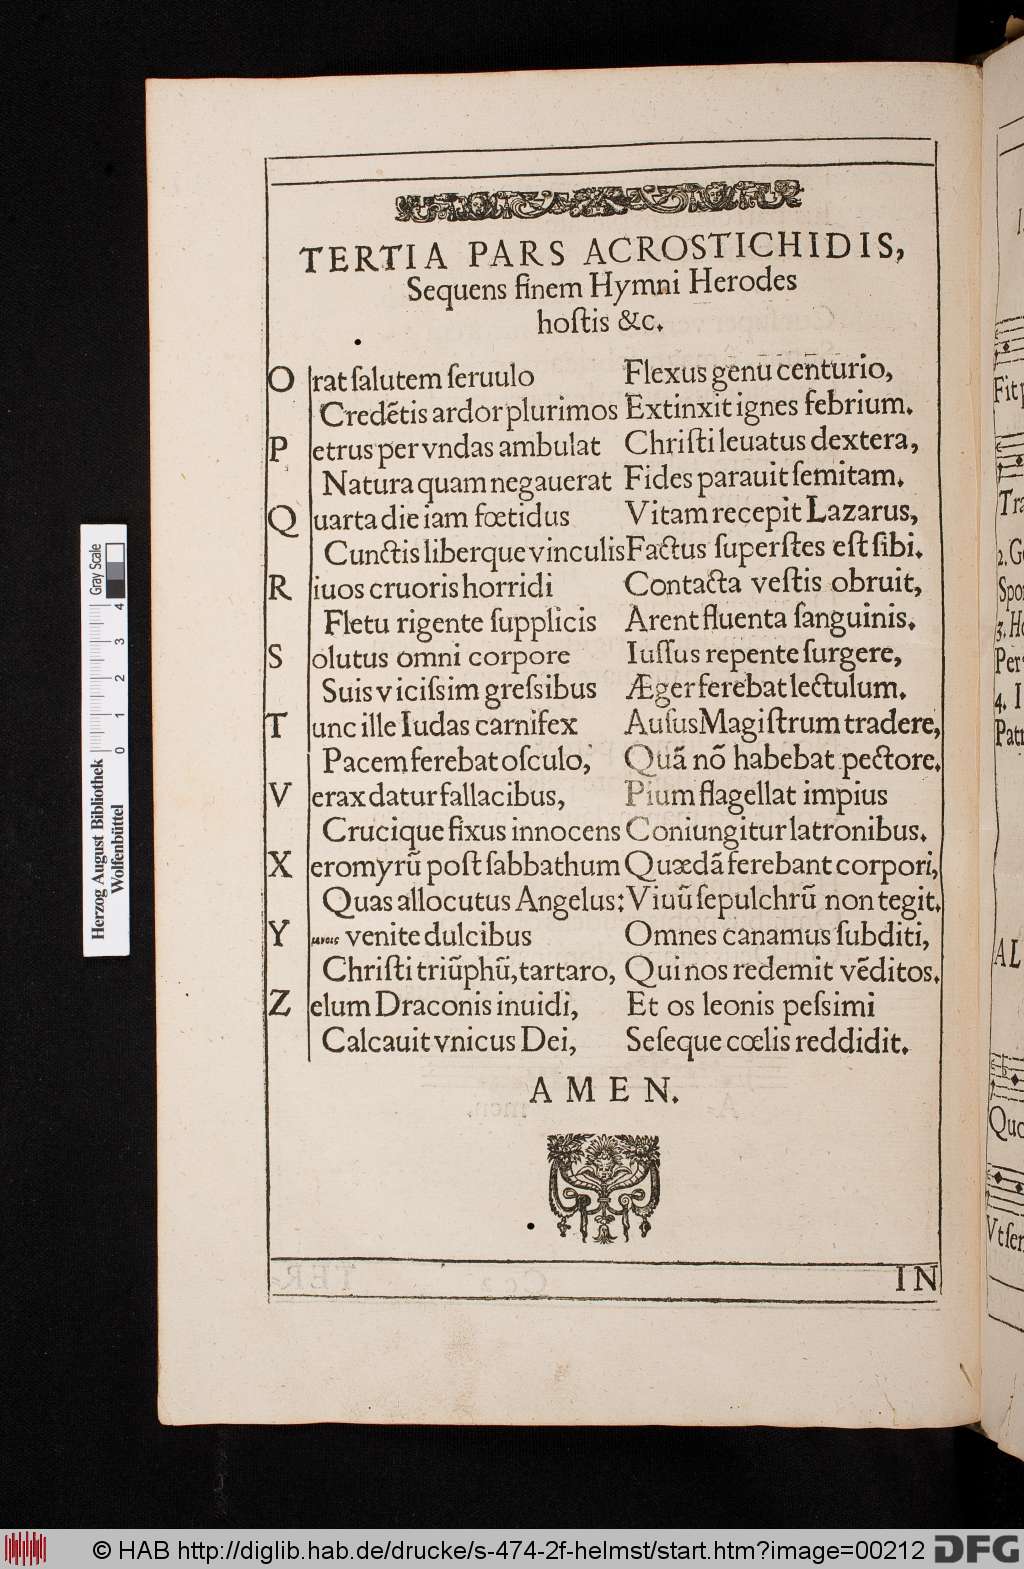 TERTIA PARS ACROSTICHIDIS,
Sequens finem Hymni Herodes
hoſtis &c.
O rat ſalutem ſeruulo Flexus genu centurio,
Credẽtis ardor plurimos Extinxit ignes febrium.
P etrus per vndas ambulat Chriſti leuatus dextera,
Natura quam negauerat Fides parauit ſemitam.
Q uarta die iam fœtidus Vitam recepit Lazarus,
Cunctis liberque vinculis Factus ſuperſtes eſt ſibi.
R iuos cruoris horridi Contacta veſtis obruit,
Fletu rigente ſupplicis Arent fluenta ſanguinis.
S olutus omni corpore Iuſſus repente ſurgere,
Suis viciſsim greſsibus Æger ferebat lectulum.
T unc ille Iudas carnifex Auſus Magiſtrum tradere,
Pacem ferebat oſculo, Quã nõ habebat pectore.
V erax datur fallacibus, Pium flagellat impius
Crucique fixus innocens Coniungitur latronibus.
X eromyrũ poſt ſabbathum Quædã ferebant corpori,
Quas allocutus Angelus: Viuũ ſepulchrũ non tegit.
Y μνοις venite dulcibus Omnes canamus ſubditi,
Chriſti triũphũ, tartaro, Qui nos redemit vẽditos.
Z elum Draconis inuidi, Et os leonis peſsimi
Calcauit vnicus Dei, Seſeque cœlis reddidit.
AMEN.
IN
Fit
Tra
2. G
Spo
3. H
Per
4. I
Pat
AL
Quo
Vt ſer
Herzog August Bibliothek
Wolfenbüttel
Gray Scale
0 1 2 3 4
© HAB http://diglib.hab.de/drucke/s-474-2f-helmst/start.htm?image=00212
DFG